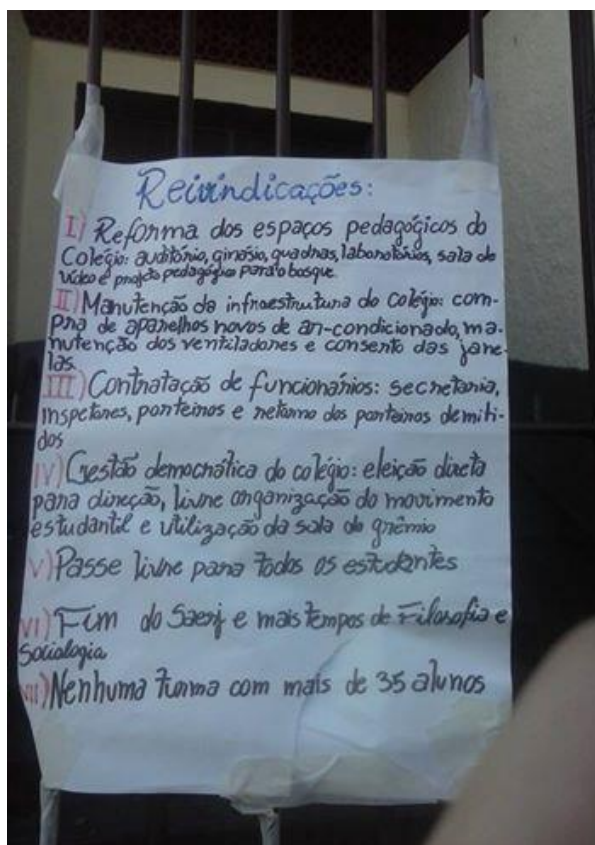 Reivindicações:
I) Reforma dos espaços pedagógicos do
Colégio: auditório, ginásio, quadras, laboratórios, sala de
vídeo e projeto pedagógico para o bosque
II) Manutenção da infraestrutura do colégio: com-
pra de aparelhos novos de ar-condicionado, ma-
nutenção dos ventiladores e conserto das jane-
las.
III) Contratação de funcionários: secretaria,
inspetores, porteiros e retorno dos porteiros demiti-
dos
IV) Gestão democrática do colégio: eleição direta
para direção, livre organização do movimento
estudantil e utilização da sala do grêmio
V) Passe livre para todos os estudantes
VI) Fim do Saerj e mais tempos de Filosofia e
Sociologia
VII) Nenhuma turma com mais de 35 alunos